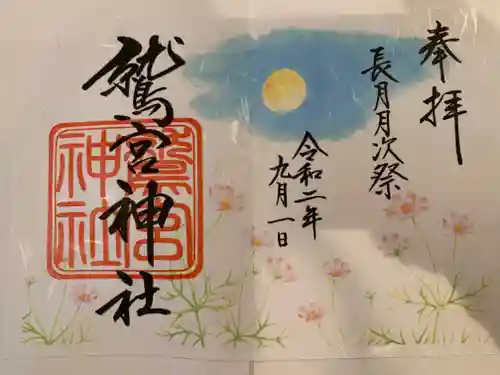 奉拝
長月月次祭
令和二年
九月一日
鷲宮神社
鷲宮
神社